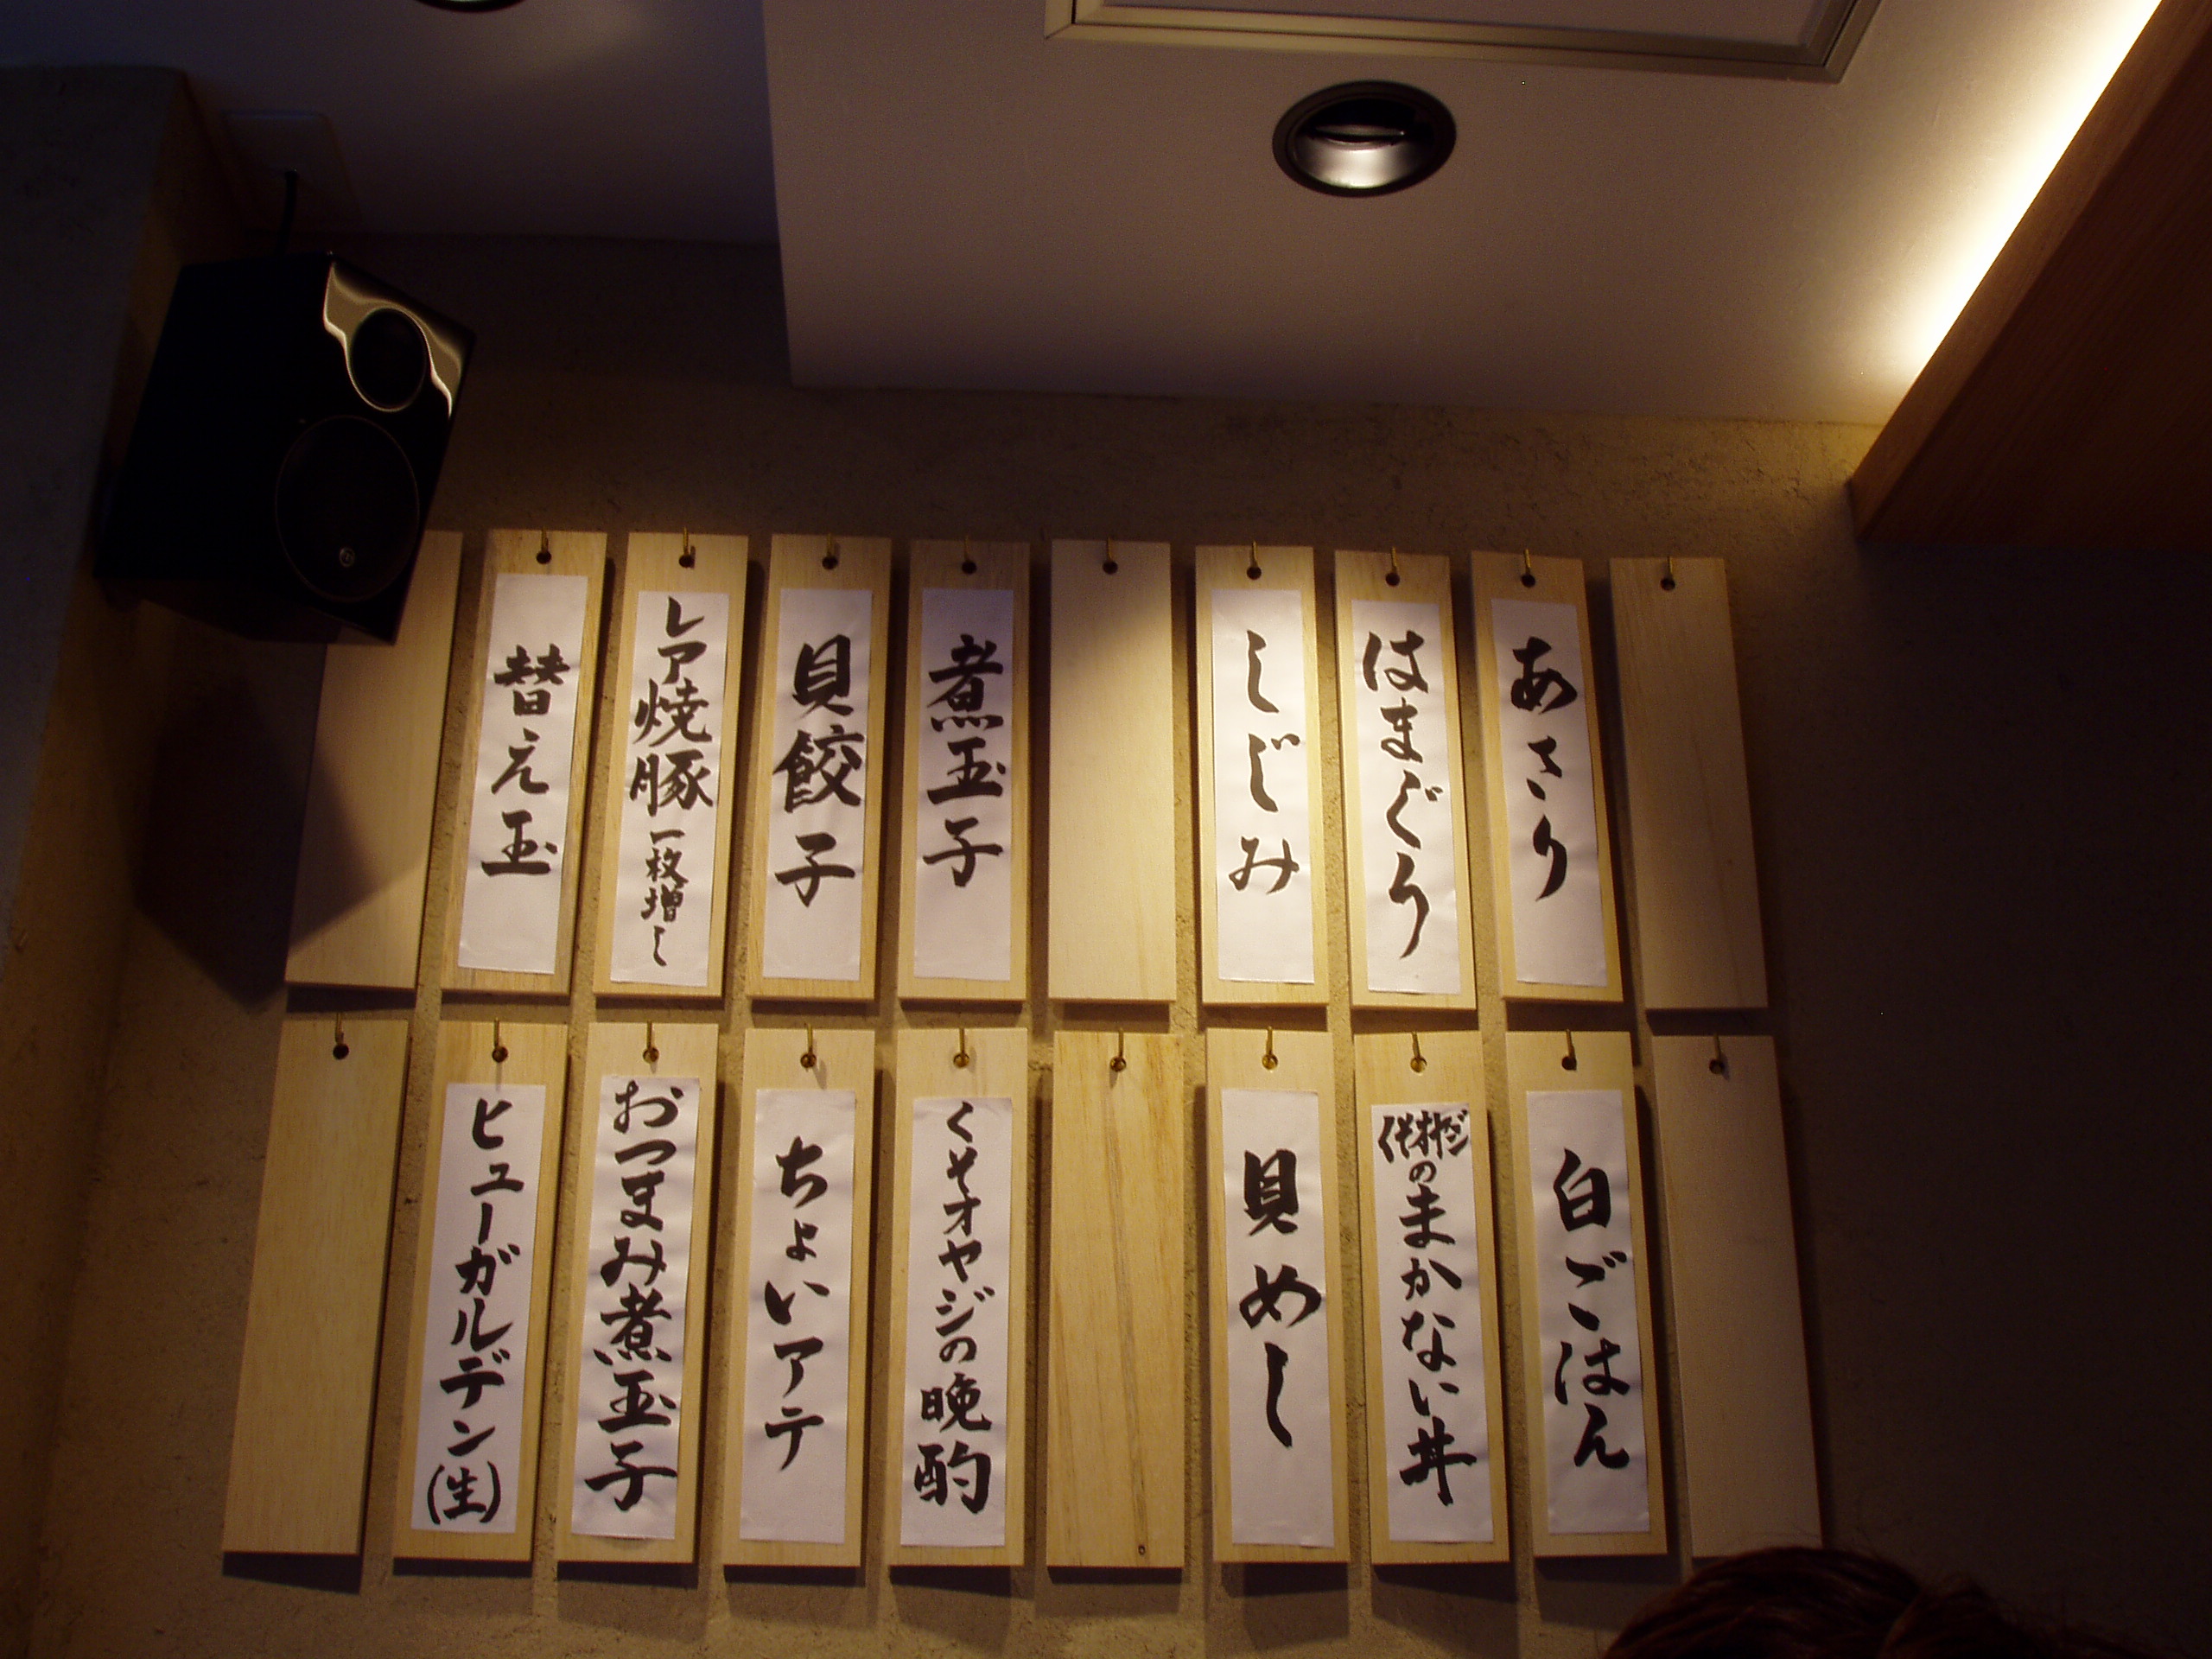 あさり
はまぐり
しじみ
煮玉子
貝餃子
レア焼豚一枚増し
替え玉
白ごはん
くそオヤジのまかない丼
貝めし
くそオヤジの晩酌
ちょいアテ
おつまみ煮玉子
ヒューガルデン(生)